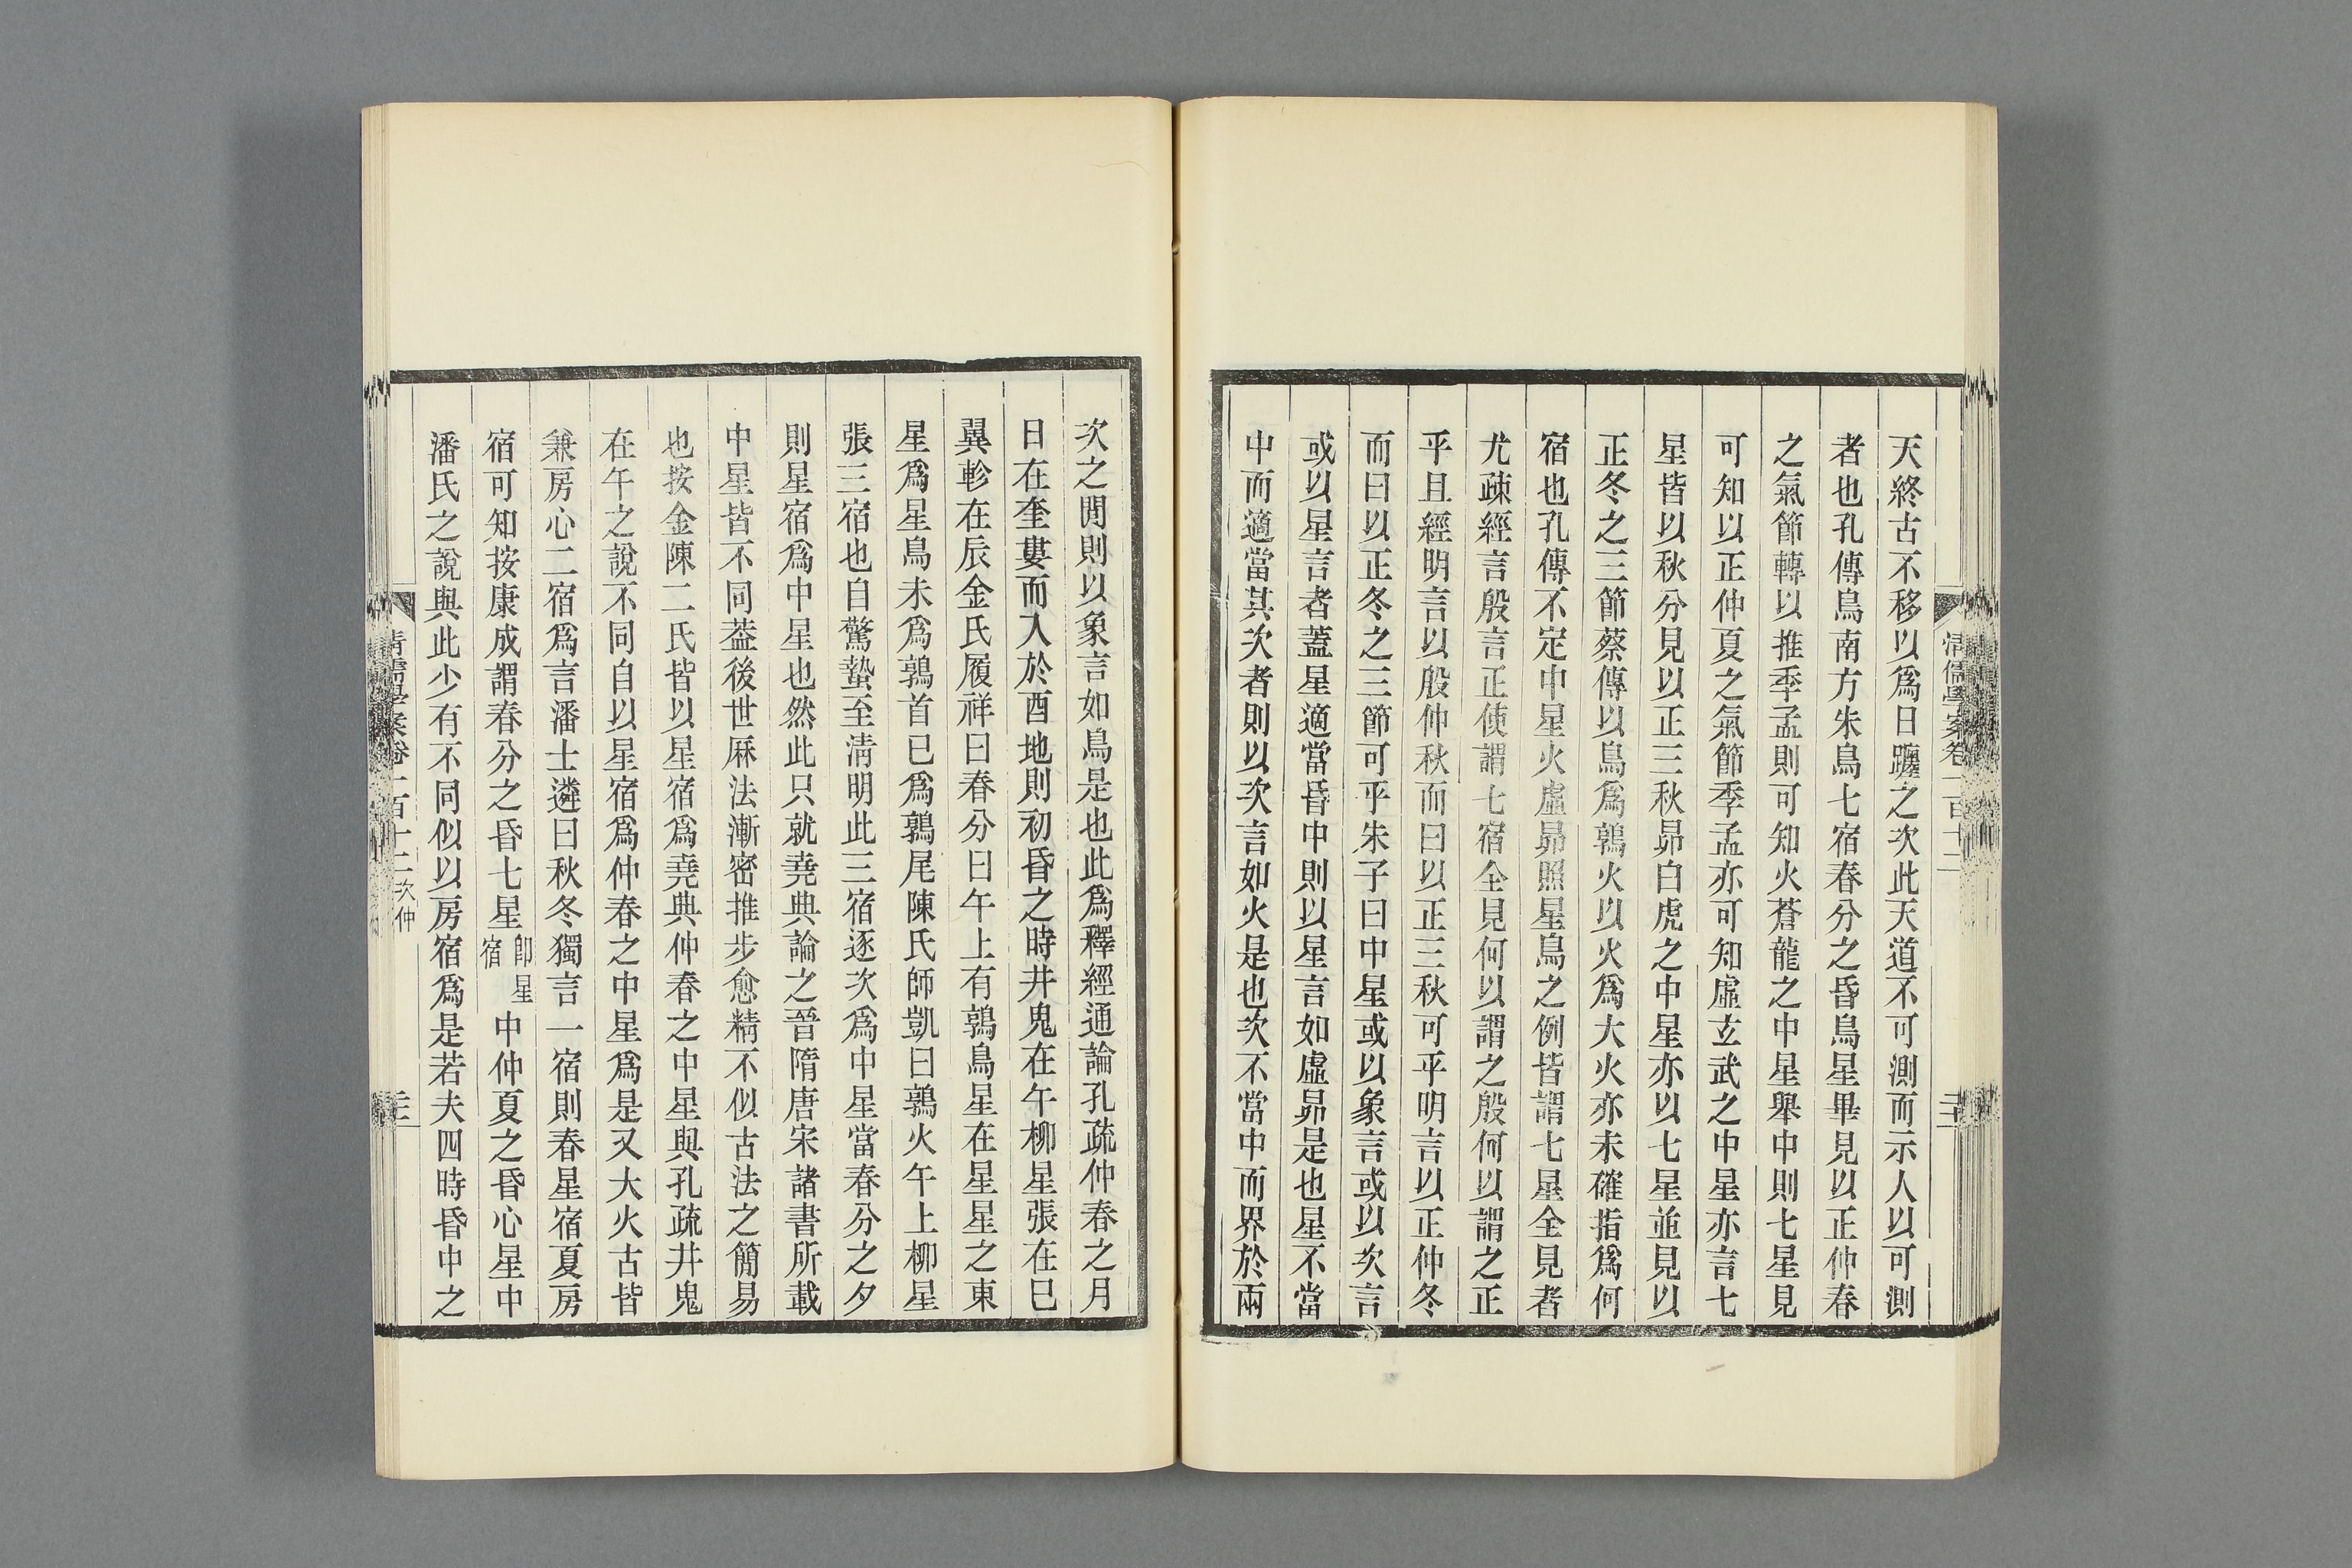 天終古不移以爲日躔之次此天道不可測而示人以可測
者也孔傳鳥南方朱鳥七宿春分之昏鳥星畢見以正仲春
之氣節轉以推季孟則可知火蒼龍之中星舉中則七星見
可知以正仲夏之氣節季孟亦可知虛玄武之中星亦言七
星皆以秋分見以正三秋昴白虎之中星亦以七星並見以
正冬之三節蔡傳以鳥爲鶉火以火爲大火亦未確指爲何
宿也孔傳不定中星火虛昴照星鳥之例皆謂七星全見者
尤疎經言殷言正使謂七宿全見何以謂之殷何以謂之正
乎且經明言以殷仲秋而曰以正三秋可乎明言以正仲冬
而曰以正冬之三節可乎朱子曰中星或以象言或以次言
或以星言者蓋星適當昏中則以星言如虛昴是也星不當
中而適當其次者則以次言如火是也次不當中而界於兩
清儒學案卷一百十二
次之閒則以象言如鳥是也此爲釋經通論孔疏仲春之月
日在奎婁而入於酉地則初昏之時井鬼在午柳星張在巳
翼軫在辰金氏履祥曰春分日午上有鶉鳥星在星星之東
星爲星鳥未爲鶉首巳爲鶉尾陳氏師凱曰鶉火午上柳星
張三宿也自驚蟄至清明此三宿逐次爲中星當春分之夕
則星宿爲中星也然此只就堯典論之晉隋唐宋諸書所載
中星皆不同葢後世厤法漸密推步愈精不似古法之簡易
也按金陳二氏皆以星宿爲堯典仲春之中星與孔疏井鬼
在午之說不同自以星宿爲仲春之中星爲是又大火古皆
兼房心二宿爲言潘士遴曰秋冬獨言一宿則春星宿夏房
宿可知按康成謂春分之昏七星卽星宿中仲夏之昏心星中
潘氏之說與此少有不同似以房宿爲是若夫四時昏中之
清儒學案卷一百十二 次仲